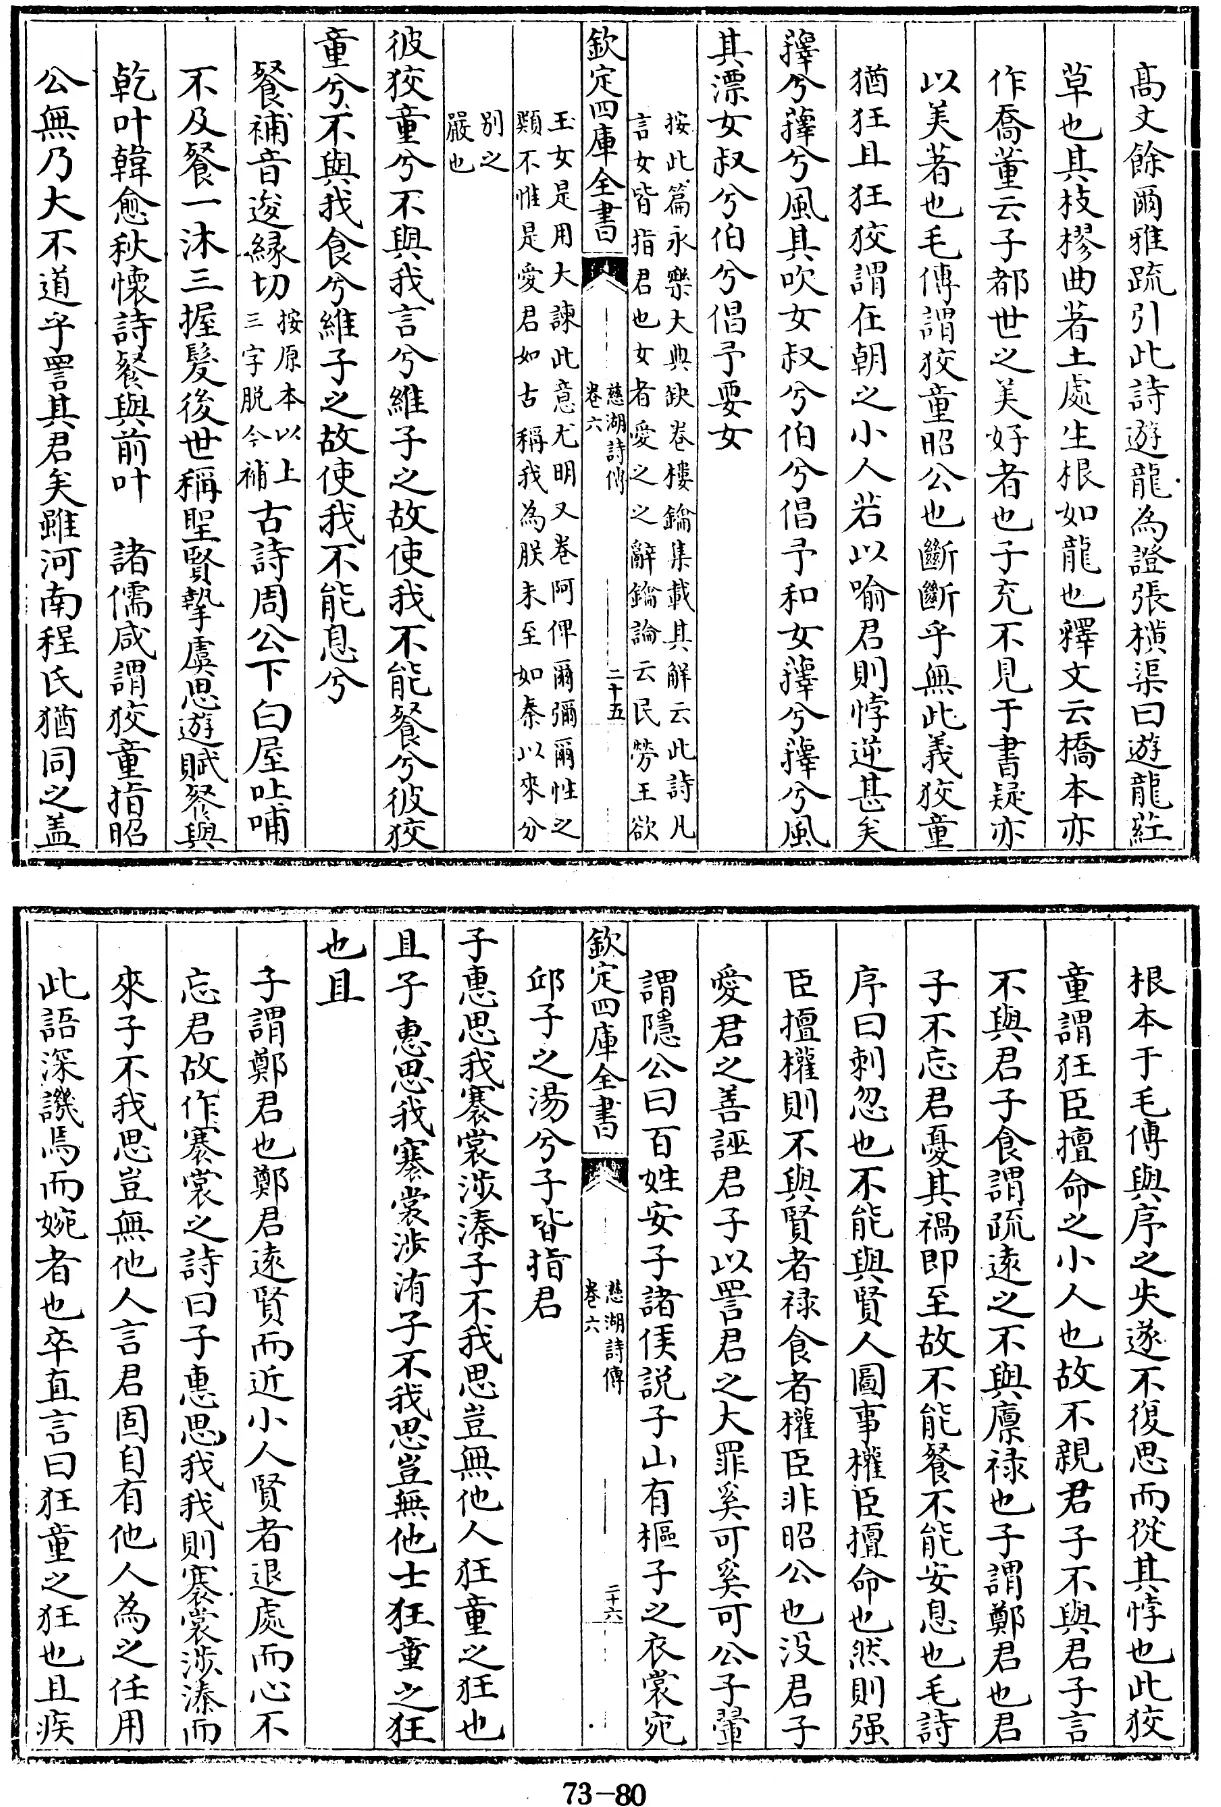 高丈餘爾雅疏引此詩遊龍為證張横渠曰遊龍葒
草也其枝樛曲着土處生根如龍也釋文云橋本亦
作喬董云子都世之美好者也子充不見于書疑亦
以美著也毛傳謂狡童昭公也斷斷乎無此義狡童
猶狂且狂狡謂在朝之小人若以喻君則悖逆甚矣
蘀兮蘀兮風其吹女叔兮伯兮倡予和女蘀兮蘀兮風
其漂女叔兮伯兮倡予要女
按此篇永樂大典缺卷樓鑰集載其解云此詩凡
言女皆指君也女者愛之之辭鑰論云民勞王欲
欽定四庫全書
慈湖詩傳
卷六
二十五
玉女是用大諫此意尤明又卷阿俾爾彌爾性之
類不惟是愛君如古稱我為朕未至如秦以來分
别之
嚴也
彼狡童兮不與我言兮維子之故使我不能餐兮彼狡
童兮不與我食兮維子之故使我不能息兮
餐補音逡縁切
按原本以上
三字脱今補
古詩周公下白屋吐哺
不及餐一沐三握髮後世稱聖賢摯虞思遊賦餐與
乾叶韓愈秋懷詩餐與前叶　諸儒咸謂狡童指昭
公無乃大不道乎詈其君矣雖河南程氏猶同之盖
根本于毛傳與序之失遂不復思而從其悖也此狡
童謂狂臣擅命之小人也故不親君子不與君子言
不與君子食謂疏遠之不與廪禄也子謂鄭君也君
子不忘君憂其禍即至故不能餐不能安息也毛詩
序曰刺忽也不能與賢人圖事權臣擅命也然則强
臣擅權則不與賢者禄食者權臣非昭公也没君子
愛君之善誣君子以詈君之大罪奚可奚可公子翬
謂隱公曰百姓安子諸侯説子山有樞子之衣裳宛
欽定四庫全書
慈湖詩傳
卷六
二十六
邱子之湯兮子皆指君
子惠思我褰裳涉溱子不我思豈無他人狂童之狂也
且子惠思我褰裳涉洧子不我思豈無他士狂童之狂
也且
子謂鄭君也鄭君遠賢而近小人賢者退處而心不
忘君故作褰裳之詩曰子惠思我我則褰裳涉溱而
來子不我思豈無他人言君固自有他人為之任用
此語深譏焉而婉者也卒直言曰狂童之狂也且疾
73-80